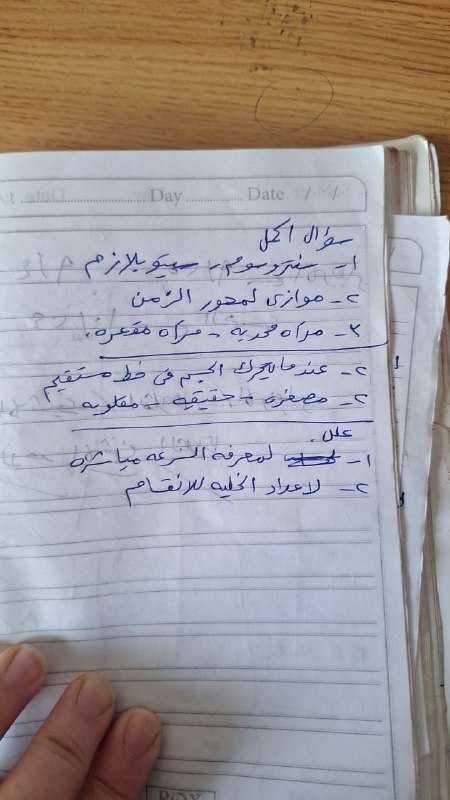 Day ............... Date / /
سؤال اكمل
١- سنتروسوم، سيتوبلازم
٢- موازى لمحور الزمن
٣- مرآه محدبة - مرآه مقعرة.
٢- عندما يتحرك الجسم فى خط مستقيم
٢- مصغره - حقيقيه - مقلوبه
علل.
١- لمعرفه السرعه مباشره
٢- لاعداد الخليه للانقسام
ROX